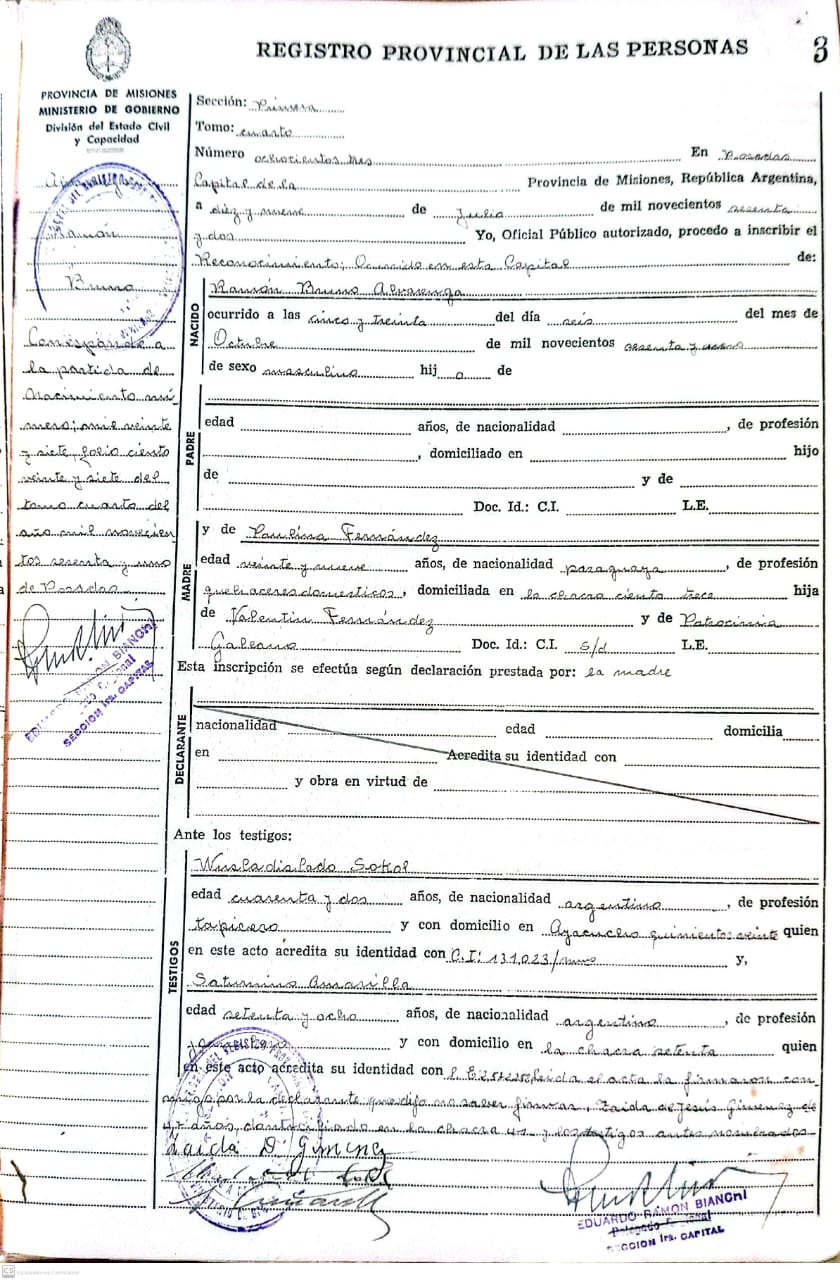 REGISTRO PROVINCIAL DE LAS PERSONAS
3
PROVINCIA DE MISIONES
MINISTERIO DE GOBIERNO
División del Estado Civil
y Capacidad
Ramón
Bruno
Corresponde a
la partida de
Nacimiento nú
mero; mil veinte
y siete, folio ciento
veinte y siete del
tomo cuarto del
año mil novecien
tos sesenta y uno
de Posadas
EDUARDO RAMON BIANCHI
SECCION 1ra. CAPITAL
Sección: Primera
Tomo: cuarto
Número ochocientos tres En Posadas
Capital de la Provincia de Misiones, República Argentina,
a diez y nueve de Julio de mil novecientos sesenta
y dos Yo, Oficial Público autorizado, procedo a inscribir el
Reconocimiento; Ocurrido en esta Capital de:
NACIDO
Ramón Bruno Alvarenga
ocurrido a las cinco y treinta del día seis del mes de
Octubre de mil novecientos sesenta y uno
de sexo masculino hij o de
PADRE
edad años, de nacionalidad , de profesión
, domiciliado en hijo
de y de
Doc. Id.: C.I. L.E.
MADRE
y de Paulina Fernández
edad veinte y nueve años, de nacionalidad paraguaya , de profesión
quehaceres domesticos , domiciliada en la chacra ciento trece hija
de Valentin Fernández y de Patrocinia
Galeano Doc. Id.: C.I. s/d L.E.
Esta inscripción se efectúa según declaración prestada por: la madre
DECLARANTE
nacionalidad edad domicilia
en Acredita su identidad con
y obra en virtud de
Ante los testigos:
TESTIGOS
Wusladislado Sokol
edad cuarenta y dos años, de nacionalidad argentino , de profesión
tapicero y con domicilio en Ayacucho quinientos veinte quien
en este acto acredita su identidad con C.I: 131,023/ y,
Saturnino Amarilla
edad setenta y ocho años, de nacionalidad argentino , de profesión
y con domicilio en la chacra setenta quien
en este acto acredita su identidad con leida el acta la firmaron con
migo por la declarante que dijo no saber firmar, Zaida de Jesús Gimenez de
47 años, domiciliada en la chacra y los testigos antes nombrados
Zaida D. Gimenez
EDUARDO RAMON BIANCHI
SECCION 1ra. CAPITAL
CS